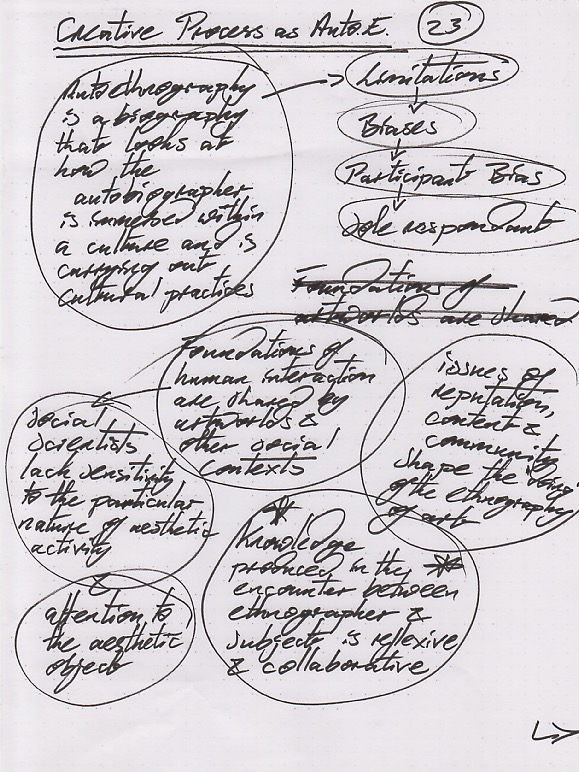 Creative Process as Auto.E. 23
Autoethnography
is a biography
that looks at
how the
autobiographer
is immersed within
a culture and is
carrying out
cultural practices
Limitations
Biases
Participant Bias
Sole respondant
Foundations of
artworlds are shared
Foundations of
human interaction
are shared by
artworlds &
other social
contexts
issues of
reputation,
content &
community
shape the "doing"
of the ethnography
of art
Social
scientists
lack sensitivity
to the particular
nature of aesthetic
activity
&
attention to
the aesthetic
object
*
Knowledge
produced in the *
encounter between
ethnographer &
subjects is reflexive
& collaborative